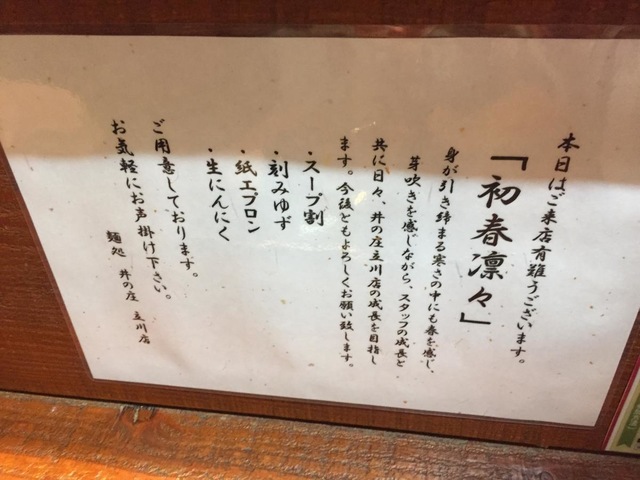 本日はご来店有難うございます。
「初春凛々」
身が引き締まる寒さの中にも春を感じ、
芽吹きを感じながら、スタッフの成長と
共に日々、井の庄立川店の成長を目指し
ます。今後ともよろしくお願い致します。
・スープ割
・刻みゆず
・紙エプロン
・生にんにく
ご用意しております。
お気軽にお声掛け下さい。
麺処 井の庄 立川店